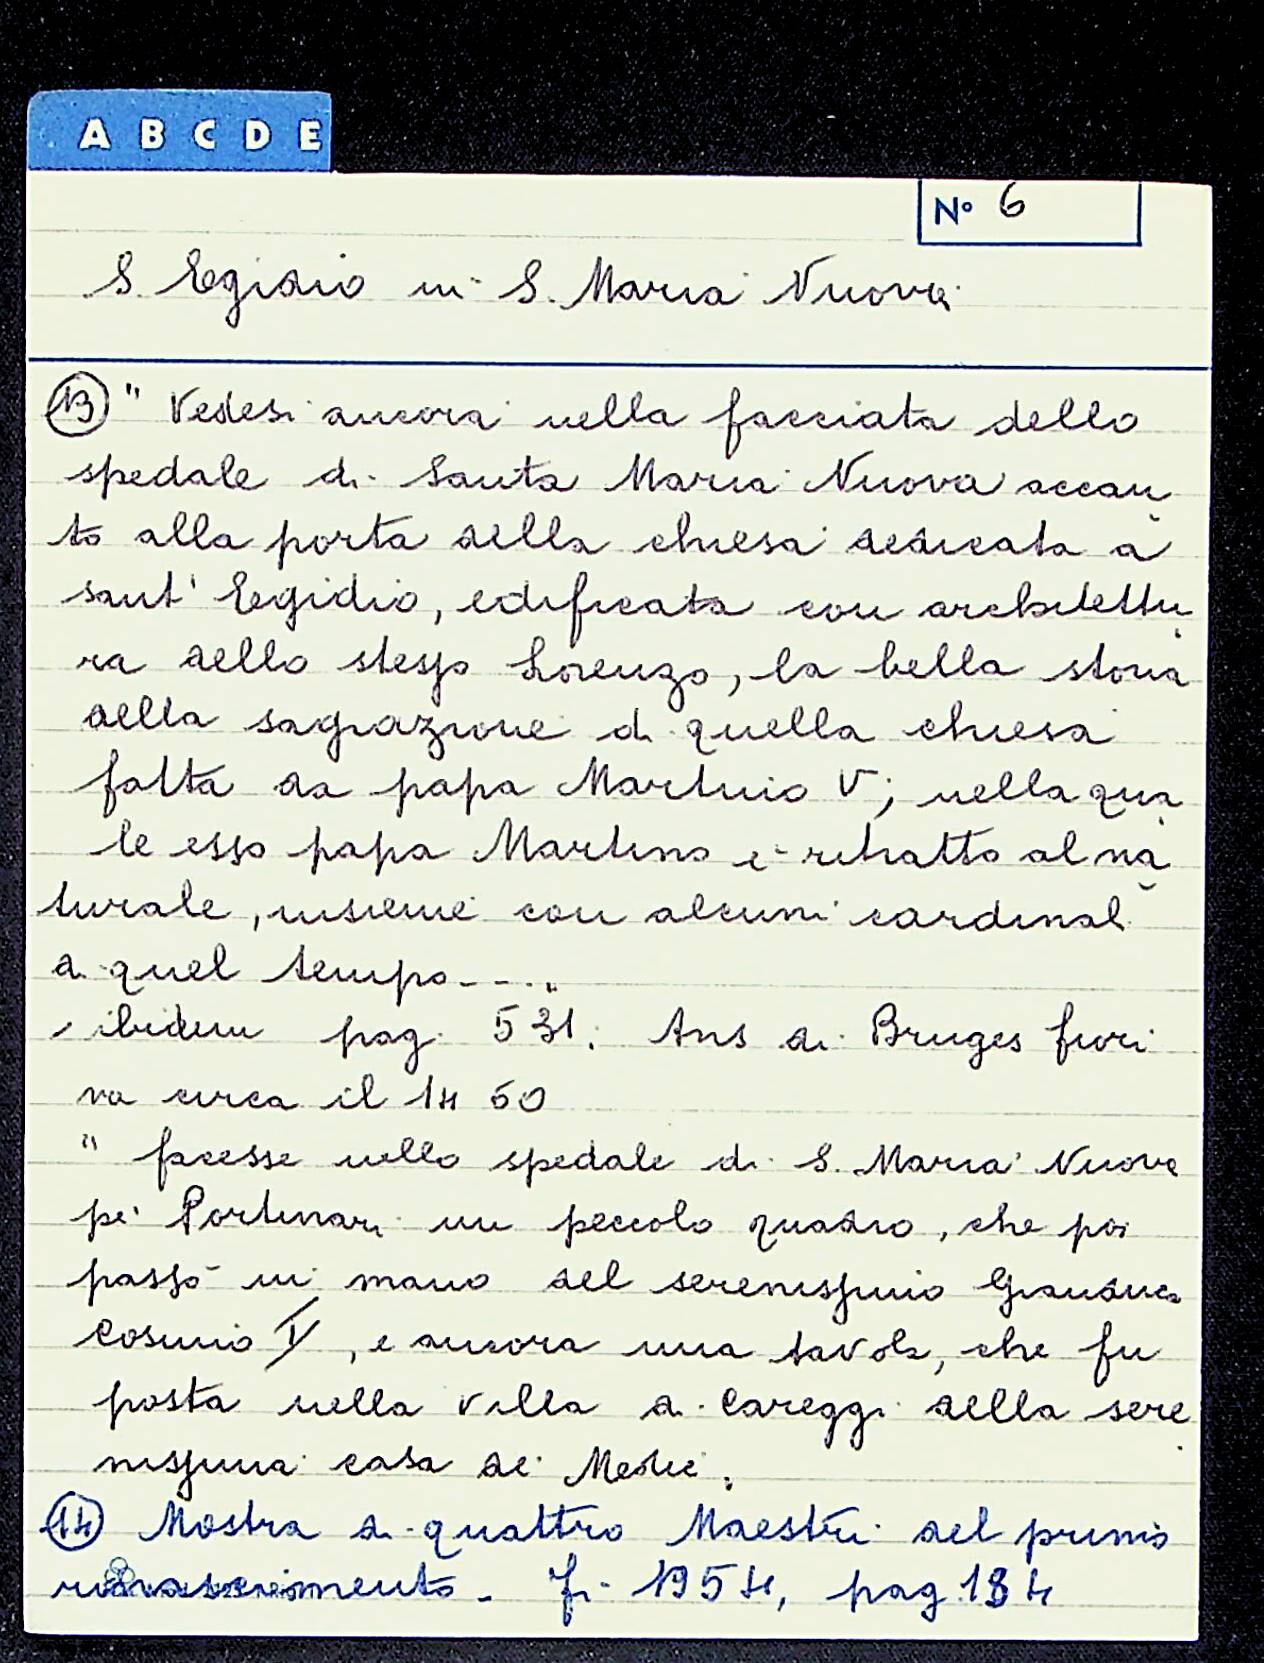 A B C D E
N° 6
S. Egidio in S. Maria Nuova
13 " Vedesi ancora nella facciata dello
spedale di Santa Maria Nuova accan
to alla porta della chiesa dedicata a
sant' Egidio, edificata con architettu
ra dello stesso Lorenzo, la bella storia
della sagrazione di quella chiesa
fatta da papa Martino V; nella qua
le esso papa Martino è ritratto al na
turale, insieme con alcuni cardinali
di quel tempo....
ibidem pag. 531. Ans di Bruges fiori
va circa il 1460
" facesse nello spedale di S. Maria Nuova
pe' Portinari un piccolo quadro, che poi
passò in mano del serenissimo Granduca
Cosimo I, e ancora una tavola, che fu
posta nella villa di Careggi della sere
nissima casa de' Medici.
14 Mostra di quattro Maestri del primo
rinascimento - Fi. 1954, pag. 184